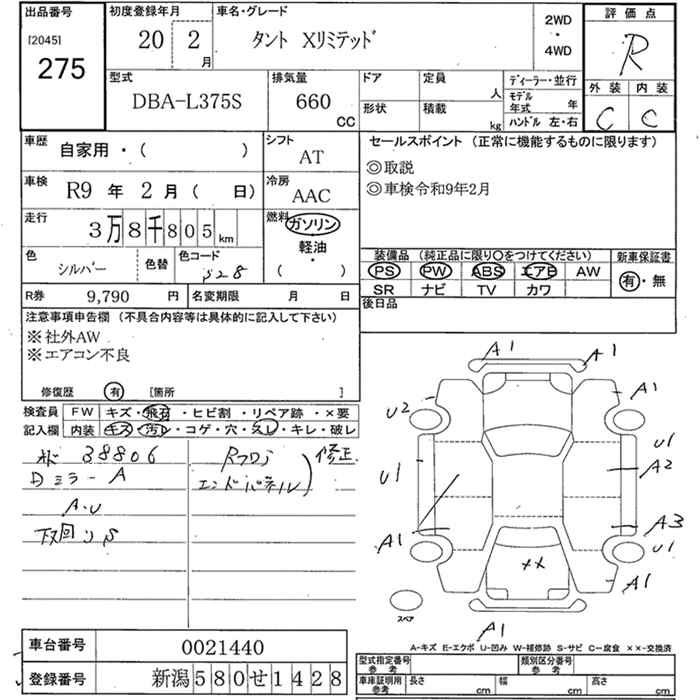 出品番号
[2045]
275
初度登録年月
20 2
月
車名・グレード
タント Xリミテッド
2WD
・
4WD
評価点
R
型式
DBA-L375S
排気量
660
CC
ドア
定員
人
形状
積載
kg
ディーラー・並行
モデル
年式 年
ハンドル 左・右
外装 内装
C C
車歴
自家用・( )
シフト
AT
セールスポイント (正常に機能するものに限ります)
◎取説
◎車検令和9年2月
車検
R9 年 2 月 ( 日)
冷房
AAC
走行
3万8千805km
燃料
ガソリン
軽油
( ・ )
色
シルバー
色替
色コード
S28
装備品 (純正品に限り○をつけてください)
PS PW ABS エアB AW
SR ナビ TV カワ
新車保証書
有・無
R券 9,790 円
名変期限 月 日
後日品
注意事項申告欄 (不具合内容等は具体的に記入して下さい)
※社外AW
※エアコン不良
修復歴 有 [箇所 ]
検査員
記入欄
FW キズ・飛石・ヒビ割・リペア跡・×要
内装 キズ・汚レ・コゲ・穴・スレ・キレ・破レ
38806
Dミラー A
A・U
下回りS
Rフロア
エンドパネル
修正
A1 A1
A1
U2
U1
U1
A2
A3
A1
U1
××
A1
スペア
A1
A-キズ E-エクボ U-凹み W-補修跡 S-サビ C-腐食 ××-交換済
車台番号 0021440
登録番号 新潟580せ1428
型式指定番号
参考
類別区分番号
参考
車庫証明用
参考
長さ cm
幅 cm
高さ cm